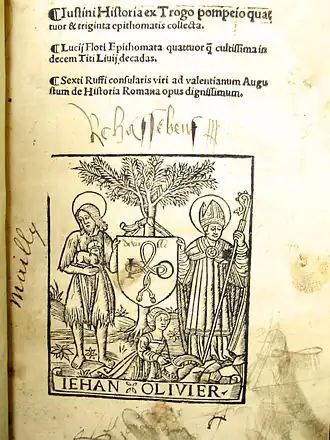 ¶Iustini Historia ex Trogo pompeio quat
tuor & triginta epithomatis collecta.
¶Lucij Flori Epithomata quattuor q̃ cultissima in
decem Titi Liuij decadas.
¶Sexti Ruffi consularis viri ad valentianum Augu
stum de Historia Romana opus dignissimum.
Mailly
IEHAN OLIVIER